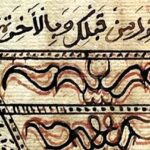 من قبلك وبالأخرة